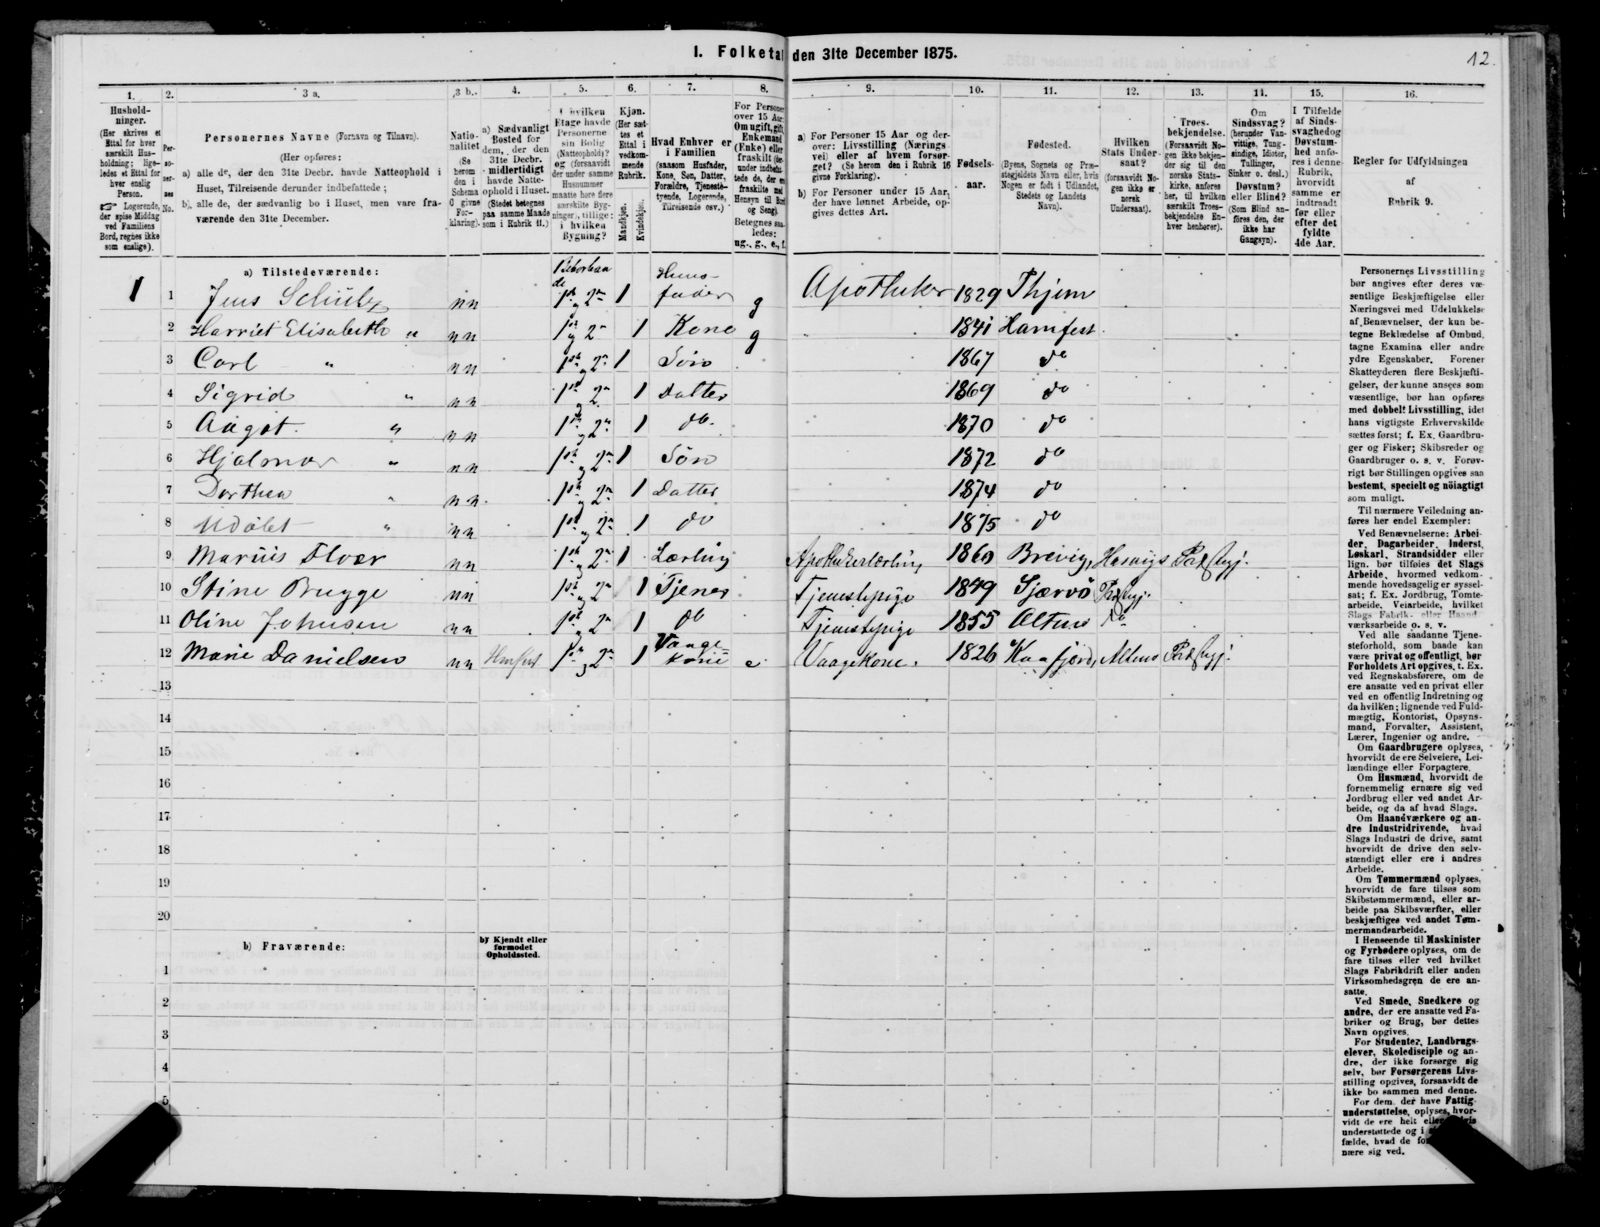 I. Folketal den 31te December 1875.
12.
1. 2. 3 a. 3 b. 4. 5. 6. 7. 8. 9. 10. 11. 12. 13. 14. 15. 16.
Hushold-
ninger.
(Her skrives et
Ettal for hver
særskilt Hus-
holdning; lige-
ledes et Ettal for
hver enslig
Person.
☞ Logerende,
der spise Middag
ved Familiens
Bord, regnes ikke
som enslige).
Per-
so-
ner-
nes
No.
Personernes Navne (Fornavn og Tilnavn).
(Her opføres:
a) alle de, der den 31te Decbr. havde Natteophold i
Huset, Tilreisende derunder indbefattede;
b) alle de, der sædvanlig bo i Huset, men vare fra-
værende den 31te December.
Natio-
nalitet
(Se
herom
den i
Schema
C givne
For-
klaring).
a) Sædvanligt
Bosted for
dem, der den
31te Decbr.
midlertidigt
havde Natte-
ophold i Huset.
(Stedet betegnes
paa samme Maade
som i Rubrik 11.)
I hvilken
Etage havde
Personerne
sin Bolig
(Natteophold)?
og (forsaavidt
der under samme
Husnummer
maatte høre flere
særskilte Byg-
ninger), tillige:
i hvilken
Bygning?
Kjøn.
(Her sæt-
tes et
Ettal i
vedkom-
mende
Rubrik.
Mandkjøn.
Kvindekjøn.
Hvad Enhver er
i Familien
(saasom Husfader,
Kone, Søn, Datter,
Forældre, Tjeneste-
tyende, Logerende,
Tilreisende osv.)
For Personer
over 15 Aar:
Om ugift, gift,
Enkemand
(Enke) eller
fraskilt
Betegnes saa-
ledes:
ug., g., e., f.
a) For Personer 15 Aar og der-
over: Livsstilling (Nærings-
vei) eller af hvem forsør-
get? (Se herom den i Rubrik 16
givne Forklaring).
b) For Personer under 15 Aar,
der have lønnet Arbeide, op-
gives dettes Art.
Fødsels-
aar.
Fødested.
(Byens, Sognets og Præ-
stegjeldets Navn eller, hvis
Nogen er født i Udlandet,
Stedets og Landets
Navn).
Hvilken
Stats Under-
saat?
(forsaavidt No-
gen ikke er
norsk
Undersaat).
Troes-
bekjendelse.
(Forsaavidt No-
gen ikke bekjen-
der sig til den
norske Stats-
kirke, anføres
her, til hvilken
særskilt Troes-
bekjendelse En-
hver henhører).
Om
Sindssvag?
(herunder Van-
vittige, Tung-
sindige, Idioter,
Tullinger,
Sinker o. desl.)
Døvstum?
eller Blind?
(Som Blind an-
føres den, der
ikke har
Gangsyn).
I Tilfælde
af Sinds-
svaghed og
Døvstum-
hed anfø-
res i denne
Rubrik,
hvorvidt
samme er
indtraadt
før eller
efter det
fyldte
4de Aar.
Regler for Udfyldningen
af
Rubrik 9.
a) Tilstedeværende:
1 1 Jens nn 1 Huus-fader g Apotheker 1829 Thjem
2 Harriet Elisabeth " nn 1ste og 2n 1 Kone g 1841 Hamfest
3 Carl " nn 1ste og 2n 1 Søn 1867 do
4 Sigrid " nn 1ste og 2n 1 Datter 1869 do
5 Aagot " nn 1ste og 2n 1 do. 1870 do
6 Hjalmar " nn 1ste og 2n 1 Søn 1872 do
7 Dorthea " nn 1ste og 2n 1 Datter 1874 do
8 Udøbt " nn 1ste og 2n 1 do 1875 do
9 Marius nn 1ste og 2n 1 Lærling Apothekerlærling 1860 Brevig, Hasvigs Præstegj.
10 Stine Brygge nn 1ste og 2n 1 Tjener Tjenestepige 1849 Sjærvø Præstegj.
11 Oline Johnsen nn 1ste og 2n 1 do Tjenestepige 1855 Altens do
12 Marie Danielsen nn 1ste og 2n 1 Vaage-kone e. Vaagekone. 1826 Kaafjord, Altens Præstegj.
13
14
15
16
17
18
19
20
b) Fraværende:
b) Kjendt eller
formodet
Opholdssted.
1
2
3
4
5
Personernes Livsstilling
bør angives efter deres væ-
sentlige Beskjæftigelse eller
Næringsvei med Udelukkelse
af Benævnelser, der kun be-
tegne Beklædelse af Ombud,
tagne Examina eller andre
ydre Egenskaber. Forener
Skatteyderen flere Beskjæfti-
gelser, der kunne ansees som
væsentlige, bør han opføres
med dobbelt Livsstilling, idet
hans vigtigste Erhvervskilde
sættes først; f. Ex. Gaardbru-
ger og Fisker; Skibsreder og
Gaardbruger o. s. v. Forøv-
rigt bør Stillingen opgives saa
bestemt, specielt og nöiagtigt
som muligt.
Til nærmere Veiledning an-
føres her endel Exempler:
Ved Benævnelserne: Arbei-
der, Dagarbeider, Inderst,
Løskarl, Strandsidder eller
lign. bør tilføies det Slags
Arbeide, hvormed vedkom-
mende hovedsagelig er syssel-
sat; f. Ex. Jordbrug, Tomte-
arbeide, Veiarbeide, hvilket
Slags Fabrik- eller Haand-
værksarbeide o. s. v.
Ved alle saadanne Tjene-
steforhold, som baade kan
være privat og offentligt, bør
Forholdets Art opgives, t. Ex.
ved Regnskabsførere, om de
ere ansatte ved en privat eller
ved en offentlig Indretning og
da hvilken; lignende ved Fuld-
mægtig, Kontorist, Opsyns-
mand, Forvalter, Assistent,
Lærer, Ingeniør og andre.
Om Gaardbrugere oplyses,
hvorvidt de ere Selveiere, Lei-
lændinge eller Forpagtere.
Om Husmænd, hvorvidt de
fornemmelig ernære sig ved
Jordbrug eller ved andet Ar-
beide, og da af hvad Slags.
Om Haandværkere og an-
dre Industridrivende, hvad
Slags Industri de drive, samt
hvorvidt de drive den selv-
stændigt eller ere i andres
Arbeide.
Om Tømmermænd oplyses,
hvorvidt de fare tilsøs som
Skibstømmermænd, eller ar-
beide paa Skibsværfter, eller
beskjæftiges ved andet Tøm-
mermandsarbeide.
I Henseende til Maskinister
og Fyrbødere oplyses, om de
fare tilsøs eller ved hvilket
Slags Fabrikdrift eller anden
Virksomhedsgren de ere an-
satte.
Ved Smede, Snedkere og
andre, der ere ansatte ved Fa-
briker og Brug, bør dettes
Navn opgives.
For Studenter, Landbrugs-
elever, Skoledisciple og an-
dre, der ikke forsørge sig
selv, bør Forsørgerens Livs-
stilling opgives, forsaavidt de
ikke bo sammen med denne.
For dem, der have Fattig-
understøttelse, oplyses, hvor-
vidt de ere helt eller
understøttede og i
fælde, hvad de
nære sig ved.